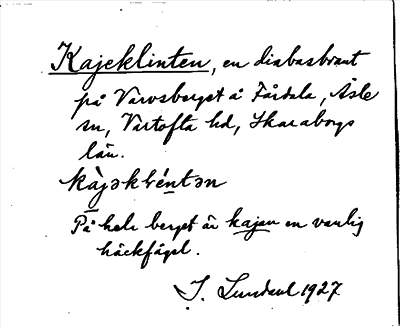 Kajeklinten, en diabasbrant
på Varvsberget å Fårdala, Åsle
sn, Vartofta hd, Skaraborgs
län.
På hela berget är kajan en vanlig
häckfågel.
J. Lundahl 1927